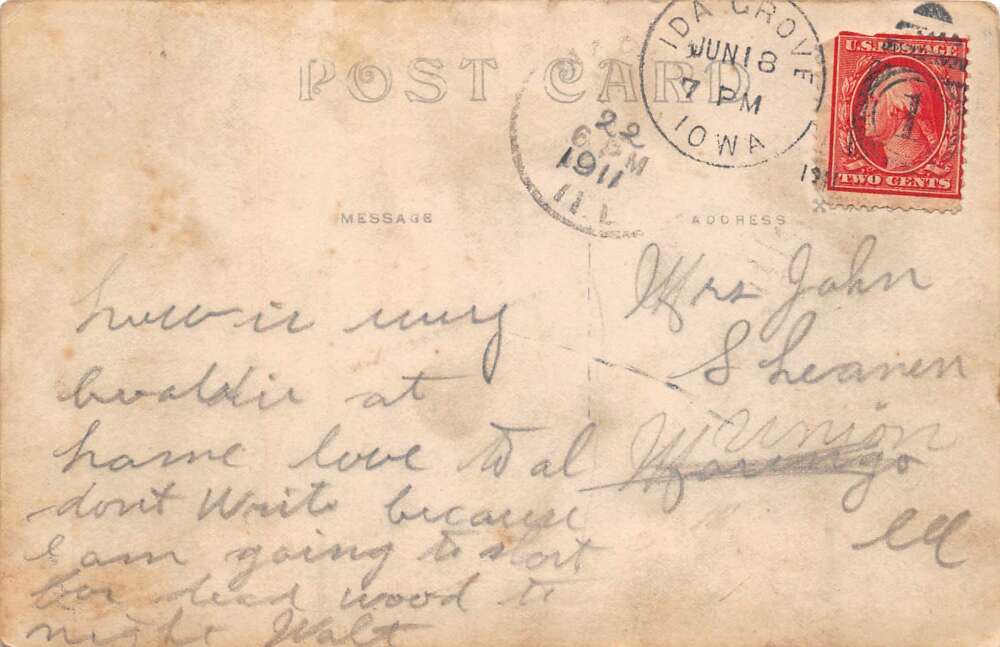 POST CARD
IDA GROVE
JUN 18
7 PM
IOWA
1911
U.S. POSTAGE
TWO CENTS
1
22
6 PM
1911
ILL
MESSAGE
ADDRESS
how is my
at
home love to al
dont write because
I am going to start
for dead wood to
night Walt
Mrs John
Shearen
Union
Marengo
Ill